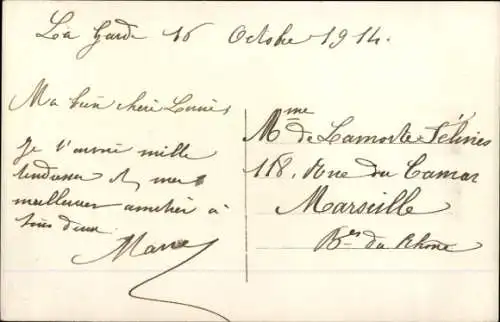 La Garde 16 Octobre 1914.
Ma bien chère Louise
Je t'envoie mille
tendresses et mes
meilleures amitiés à
tous deux
Marie
Mme de Lamotte Félines
118, Rue du Camas
Marseille
Bes du Rhône